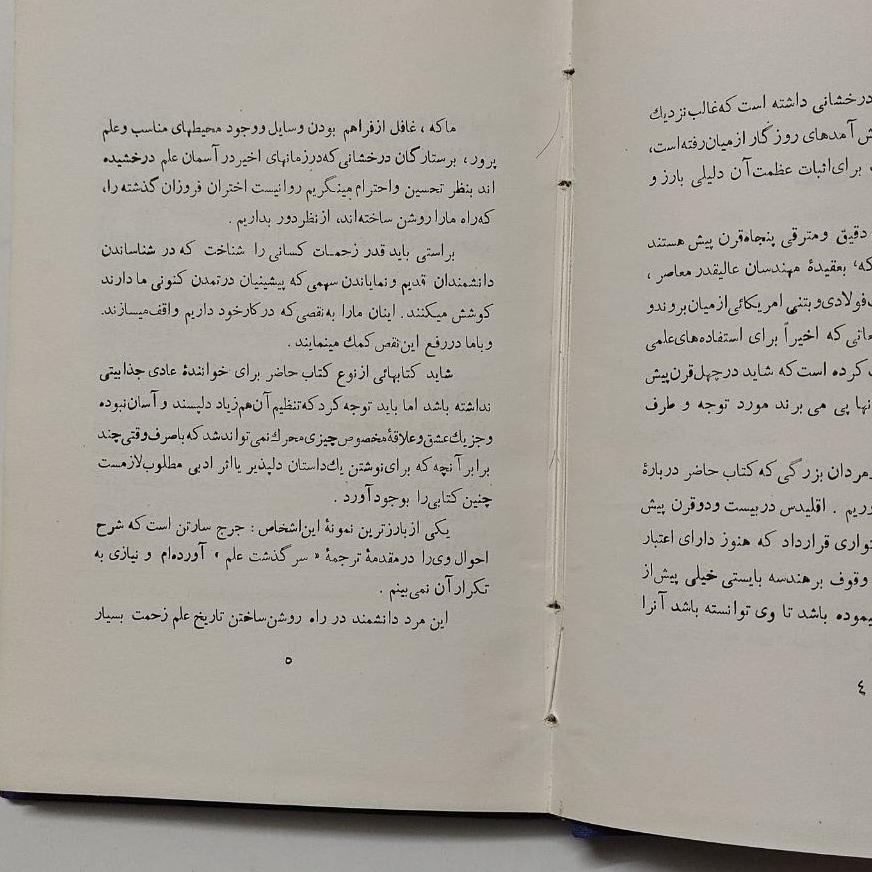 درخشانی داشته است که غالب نزدیك
آمدهای روزگار ازمیان‌رفته‌است،
برای‌اثبات عظمت‌آن دلیلی بارز و
دقیق ومترقی پنجاه‌قرن پیش هستند
که، بعقیدهٔ مهندسان عالیقدر معاصر ،
فولادی‌وبتنی امریکائی‌ازمیان‌بروندو
که اخیراً برای استفاده‌های‌علمی
کرده است‌که شاید درچهل‌قرن‌پیش
پی می‌برند مورد توجه و طرف
مردان بزرگی که کتاب حاضر دربارهٔ
اقلیدس دربیست ودوقرن پیش
قرارداد که هنوز دارای اعتبار
وقوف برهندسه بایستی خیلی پیش‌از
باشد تا وی توانسته باشد آنرا
٤
ماکه ، غافل ازفراهم بودن وسایل ووجود محیطهای مناسب وعلم
پرور، برستارگان درخشانی‌که‌درزمانهای اخیردر آسمان علم درخشیده
اند بنظر تحسین واحترام مینگریم روانیست اختران فروزان گذشته را،
که‌راه مارا روشن ساخته‌اند، ازنظردور بداریم .
براستی باید قدر زحمات کسانی را شناخت که در شناساندن
دانشمندان قدیم و نمایاندن سهمی که پیشینیان درتمدن کنونی ما دارند
کوشش میکنند. اینان مارا به‌نقصی‌که درکارخود داریم واقف‌میسازند.
وباما دررفع این‌نقص کمك مینمایند .
شاید کتابهائی ازنوع کتاب حاضر برای خوانندهٔ عادی جذابیتی
نداشته باشد اما باید توجه کردکه‌تنظیم آن‌هم‌زیاد دلپسند و آسان‌نبوده
وجزیك‌عشق‌وعلاقهٔ‌مخصوص‌چیزی‌محرك‌نمی‌تواندشدکه‌باصرف‌وقتی‌چند
برابر آنچه‌که برای‌نوشتن یك‌داستان دلپذیر یااثر ادبی مطلوب‌لازمست
چنین کتابی‌را بوجودآورد .
یکی ازبارزترین نمونهٔ این‌اشخاص : جرج سارتن است که شرح
احوال وی‌را درمقدمهٔ ترجمهٔ « سرگذشت علم » آورده‌ام و نیازی به
تکرارآن نمی‌بینم .
این مرد دانشمند در راه روشن‌ساختن تاریخ علم زحمت بسیار
٥